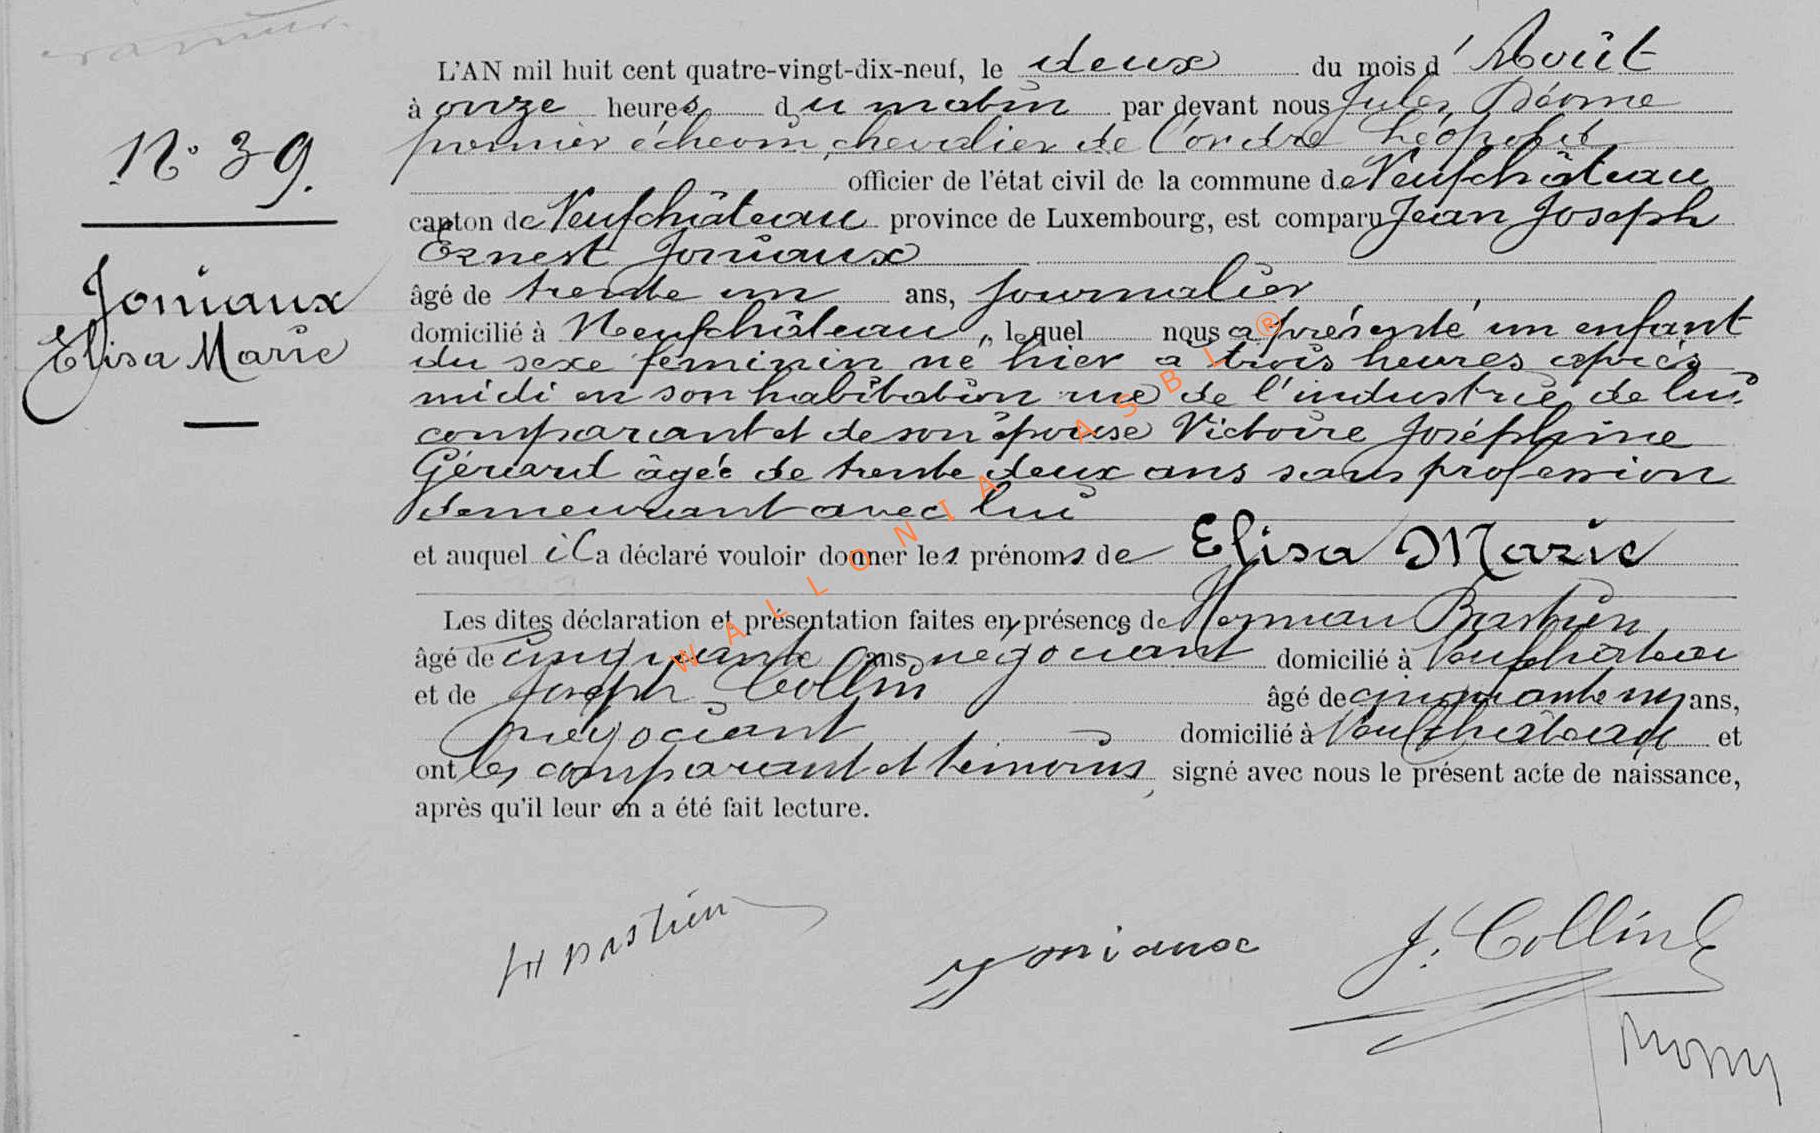 L'AN mil huit cent quatre-vingt-dix-neuf, le deux du mois d'Août
à onze heures du matin par devant nous Jules
premier échevin, chevalier de l'ordre Léopold
officier de l'état civil de la commune de Neufchâteau
canton de Neufchâteau province de Luxembourg, est comparu Jean Joseph
Ernest Joniaux
âgé de trente un ans, journalier
domicilié à Neufchâteau, lequel nous a présenté un enfant
du sexe féminin né hier à trois heures après
midi en son habitation rue de l'industrie de lui
comparant et de son épouse Victoire Joséphine
Gérard âgée de trente deux ans sans profession
demeurant avec lui
et auquel il a déclaré vouloir donner les prénoms de Elisa Marie
Les dites déclaration et présentation faites en présence de Herman Bastien
âgé de cinquante ans, négociant domicilié à Neufchâteau
et de Joseph Collin âgé de cinquante un ans,
négociant domicilié à Neufchâteau et
ont les comparant et témoins, signé avec nous le présent acte de naissance,
après qu'il leur en a été fait lecture.
N° 39.
Joniaux
Elisa Marie
H Bastien
Joniaux
J. Collin
WALLONIA ASBL ®